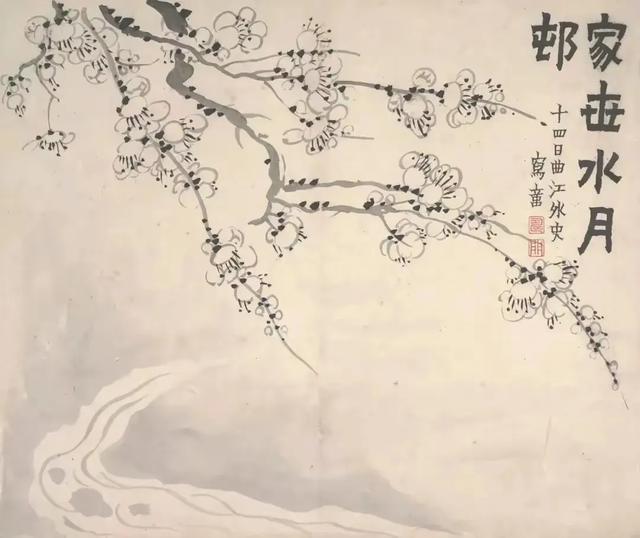 家世水月
邨
十四日曲江外史
寫